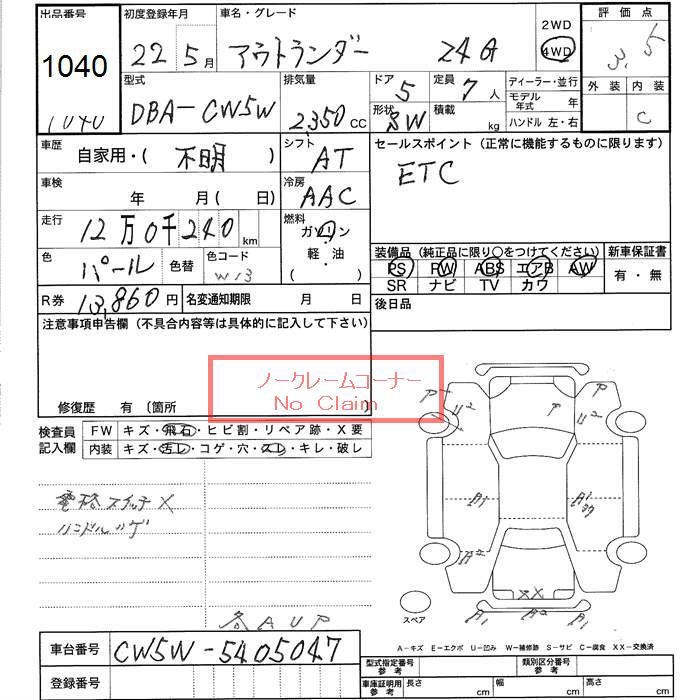 出品番号 初度登録年月 車名・グレード 2WD 評価点
1040 22 5月 アウトランダー 24G 4WD 3.5
1040 型式 排気量 ドア 定員 ディーラー・並行 外装 内装
DBA-CW5W 2,350 CC 5 7人 モデル年式 年 C
形状 SW 積載 kg ハンドル 左・右
車歴 自家用・( 不明 ) シフト AT セールスポイント (正常に機能するものに限ります)
車検 年 月( 日) 冷房 AAC ETC
走行 12万0千240km 燃料 ガソリン
軽・油
( ・ )
色 パール 色替 色コード W13
装備品 (純正品に限り○をつけてください) 新車保証書
PS PW ABS エアB AW 有・無
SR ナビ TV カワ
R券 13,860円 名変通知期限 月 日 後日品
注意事項申告欄 (不具合内容等は具体的に記入して下さい)
ノークレームコーナー
No Claim
修復歴 有 〔箇所
検査員記入欄 FW キズ・飛石・ヒビ割・リペア跡・X要
内装 キズ・汚レ・コゲ・穴・スレ・キレ・破レ
電格スイッチX
ハンドルハゲ
各AUP
P U2 P U2 P
A1 A1
XX
A1 A2 A1
スペア
A-キズ E-エクボ U-凹み W-補修跡 S-サビ C-腐食 XX-交換済
車台番号 CW5W-5405047
登録番号
型式指定番号 参考 類別区分番号 参考
車庫証明用 参考 長さ cm 幅 cm 高さ cm